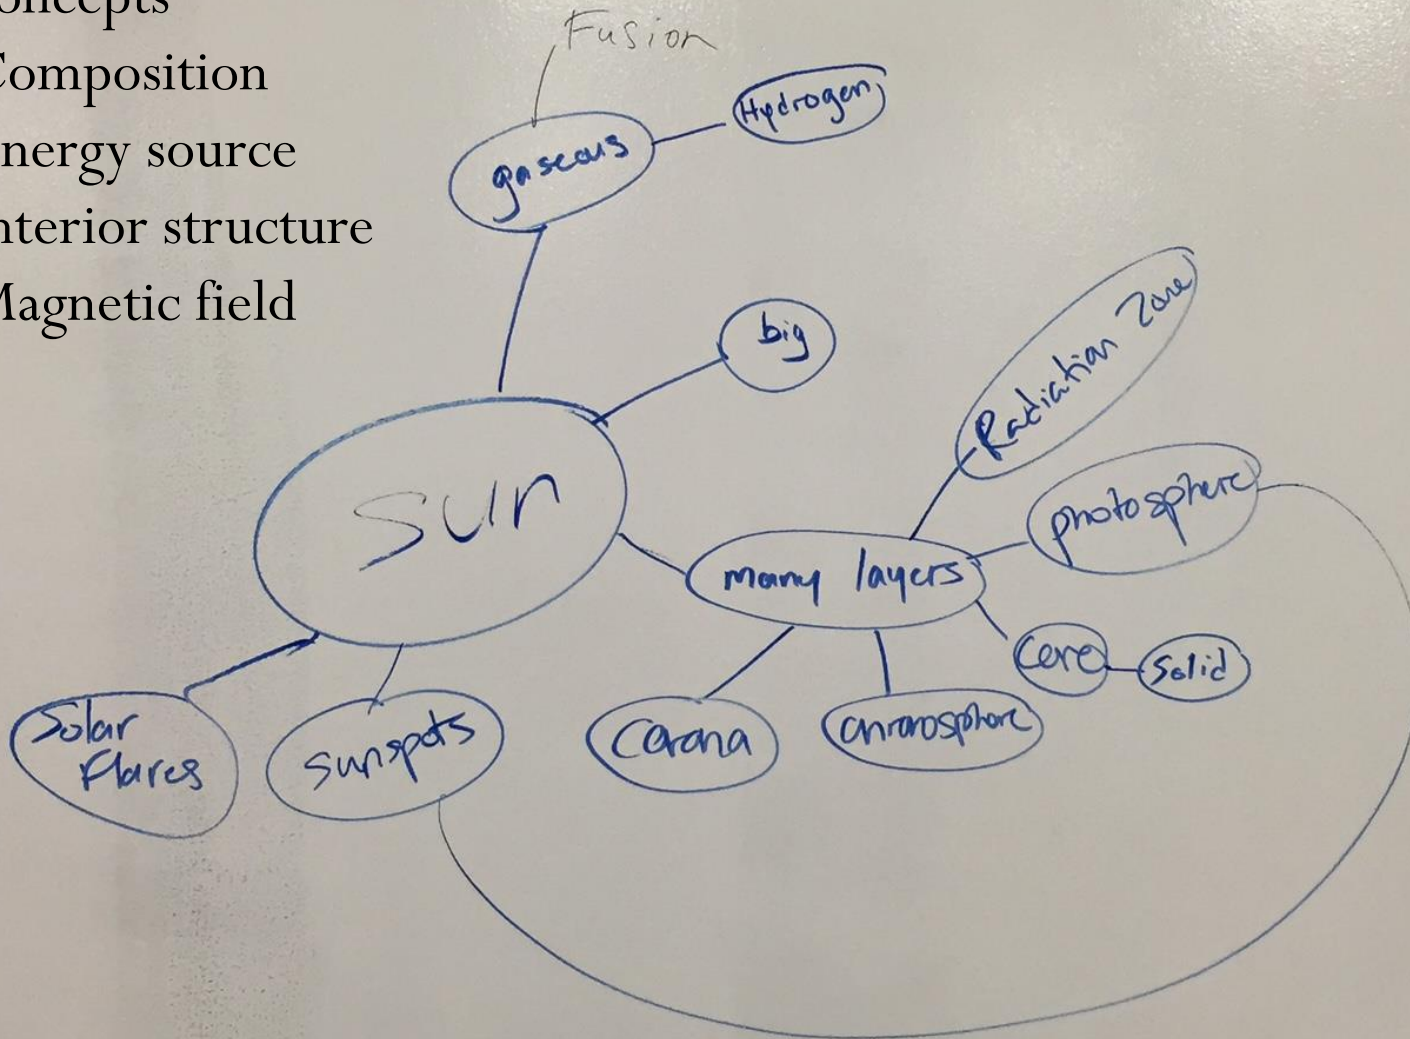 oncepts
Composition
nergy source
nterior structure
Magnetic field
Fusion
Hydrogen
gaseous
big
Radiation Zone
sun
photosphere
many layers
Core
Solid
Solar
Flares
sunspots
Corona
chromosphere